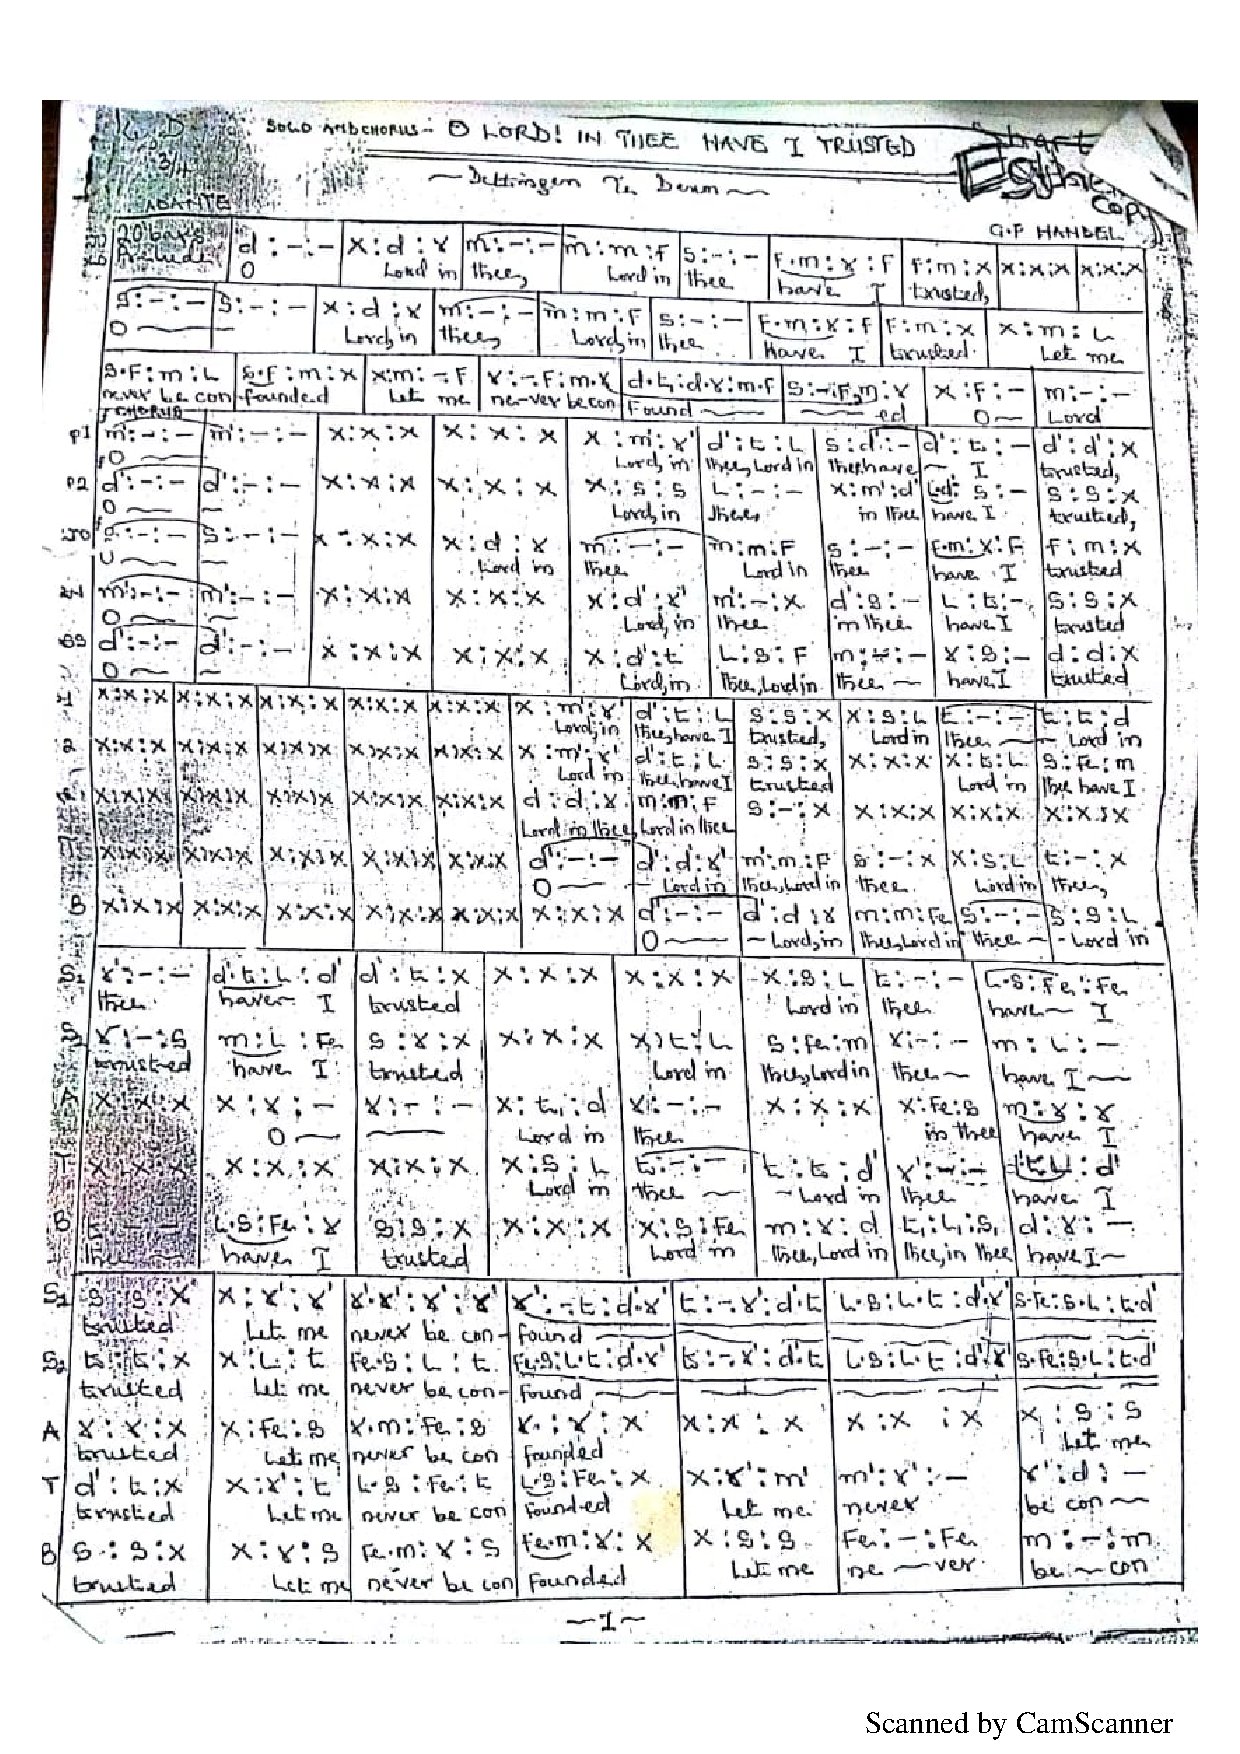 SOLO AND CHORUS - O LORD! IN THEE HAVE I TRUSTED
~ Dettingen Te Deum ~
3/4
Esther
copy
G.F HANDEL
20 bars Prelude | d : - : - | x : d : r | m : - : - | m : m : f | s : - : - | f.m : r : f | f : m : x | x : x : x | x : x : x
O Lord in thee, Lord in thee have I trusted,
s : - : - | s : - : - | x : d : r | m : - : - | m : m : f | s : - : - | f.m : r : f | f : m : x | x : m : l
O ~ ~ Lord, in thee, Lord, in thee have I trusted. Let me
s.f : m : l | s.f : m : x | x : m : -.f | r : -.f : m.r | d.t, : d.r : m.f | s : -.f : m.r | x : f : - | m : - : -
never be con-founded Let me ne-ver be con Found ~ ~ ed O ~ Lord
CHORUS
m' : - : - | m' : - : - | x : x : x | x : x : x | x : m' : r' | d' : t : l | s : d' : - | d' : t : - | d' : d' : x
O ~ Lord, in thee, Lord in thee, have ~ I trusted,
d' : - : - | d' : - : - | x : x : x | x : x : x | x : s : s | l : - : - | x : m' : d' | l.d' : s : - | s : s : x
O ~ ~ Lord, in thee, in thee have I trusted,
s : - : - | s : - : - | x : x : x | x : d : r | m : - : - | m : m : f | s : - : - | f.m : r : f | f : m : x
~ ~ Lord in thee Lord in thee have I trusted
m' : - : - | m' : - : - | x : x : x | x : x : x | x : d' : r' | m' : - : x | d' : s : - | l : t : - | s : s : x
O ~ ~ Lord, in thee in thee have I trusted
d' : - : - | d' : - : - | x : x : x | x : x : x | x : d' : t | l : s : f | m : r : - | r : s : - | d : d : x
O ~ ~ Lord, in thee, Lord in thee ~ have I trusted
x : x : x | x : x : x | x : x : x | x : x : x | x : x : x | x : m' : r' | d' : t : l | s : s : x | x : s : l | t : - : - | t : t : d
Lord, in thee, have I trusted, Lord in thee ~ ~ Lord in
2 x : x : x | x : x : x | x : x : x | x : x : x | x : x : x | x : m' : r' | d' : t : l | s : s : x | x : x : x | x : t : l | s : fe : m
Lord in thee, have I trusted Lord in thee have I
x : x : x | x : x : x | x : x : x | x : x : x | x : x : x | d : d : r | m : m : f | s : - : x | x : x : x | x : x : x | x : x : x
Lord in thee, Lord in thee
x : x : x | x : x : x | x : x : x | x : x : x | x : x : x | d' : - : - | d' : d' : r' | m' : m : f | s : - : x | x : s : l | t : - : x
O ~ - Lord in thee, Lord in thee Lord in thee,
B x : x : x | x : x : x | x : x : x | x : x : x | x : x : x | x : x : x | d' : - : - | d' : d : r | m : m : fe | s : - : - | s : s : l
O ~ ~ Lord, in thee, Lord in thee ~ - Lord in
S1 r' : - : - | d'.t : l : d' | d' : t : x | x : x : x | x : x : x | x : s : l | t : - : - | l.s : fe : fe
thee have ~ I trusted Lord in thee have ~ I
S r' : - : s | m : l : fe | s : r : x | x : x : x | x : t : l | s : fe : m | r : - : - | m : l : -
trusted have I trusted Lord in thee, Lord in thee ~ have I ~
A x : x : x | x : r : - | r : - : - | x : t, : d | r : - : - | x : x : x | x : fe : s | m : r : r
O ~ ~ Lord in thee in thee have I
T x : x : x | x : x : x | x : x : x | x : s : l | t : - : - | t : t : d' | r' : - : - | d'.t : l : d'
Lord in thee ~ ~ Lord in thee have I
B s : - : - | l.s : fe : r | s : s : x | x : x : x | x : s : fe | m : r : d | t, : l, : s, | d : r : -
thee ~ have I trusted Lord in thee, Lord in thee, in thee have I ~
S1 s : s : x | x : r' : r' | r'.r' : r' : r' | r' : -.t : d'.r' | t : -.r' : d'.t | l.s : l.t : d'.r' | s.fe : s.l : t.d'
trusted Let me never be con- found ~
S2 t : t : x | x : l : t | fe.s : l : t | fe.s : l.t : d'.r' | t : -.r' : d'.t | l.s : l.t : d'.r' | s.fe : s.l : t.d'
trusted Let me never be con- found ~
A r : r : x | x : fe : s | r.m : fe : s | r. : r : x | x : x : x | x : x : x | x : s : s
trusted Let me never be con founded Let me
T d' : t : x | x : r' : t | l.s : fe : t | l.s : fe : x | x : r' : m' | m' : r' : - | r' : d' : -
trusted Let me never be con founded Let me never be con ~
B s : s : x | x : r : s | fe.m : r : s | fe.m : r : x | x : s : s | fe : - : fe | m : - : m
trusted Let me never be con founded Let me ne ~ ver be ~ con
~ 1 ~
Scanned by CamScanner